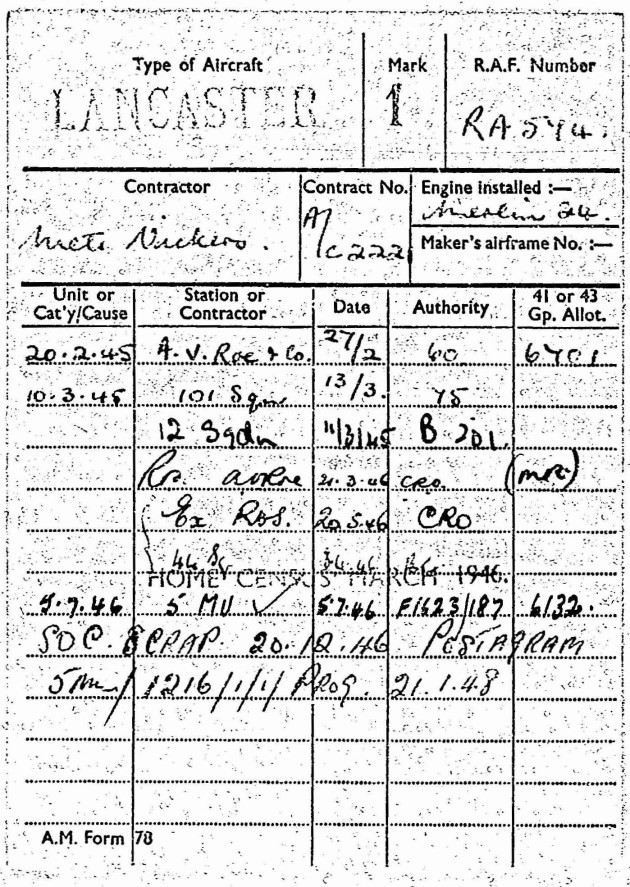 Type of Aircraft Mark R.A.F. Number
LANCASTER 1 RA 574.
Contractor Contract No. Engine Installed :—
Merlin 24.
Metro Vickers. A/C222 Maker's airframe No. :—
Unit or Cat'y/Cause Station or Contractor Date Authority 41 or 43 Gp. Allot.
20.2.45 A.V. Roe & Co. 27/2 60 6701
10.3.45 101 Sqn 13/3. 75
12 Sqdn 11/3/45 B 201.
Ros avroe 21.3.46 CRO.
Ex ROS. 20.5.46 CRO
44 Sq
HOME CENSUS MARCH 1946.
5.7.46 5 MU 5.7.46 F1623/187 6132.
SOC. SCRAP 20.12.46 POSTAGRAM
5 mu/ 1216/1/1/ Prog. 21.1.48
A.M. Form 78